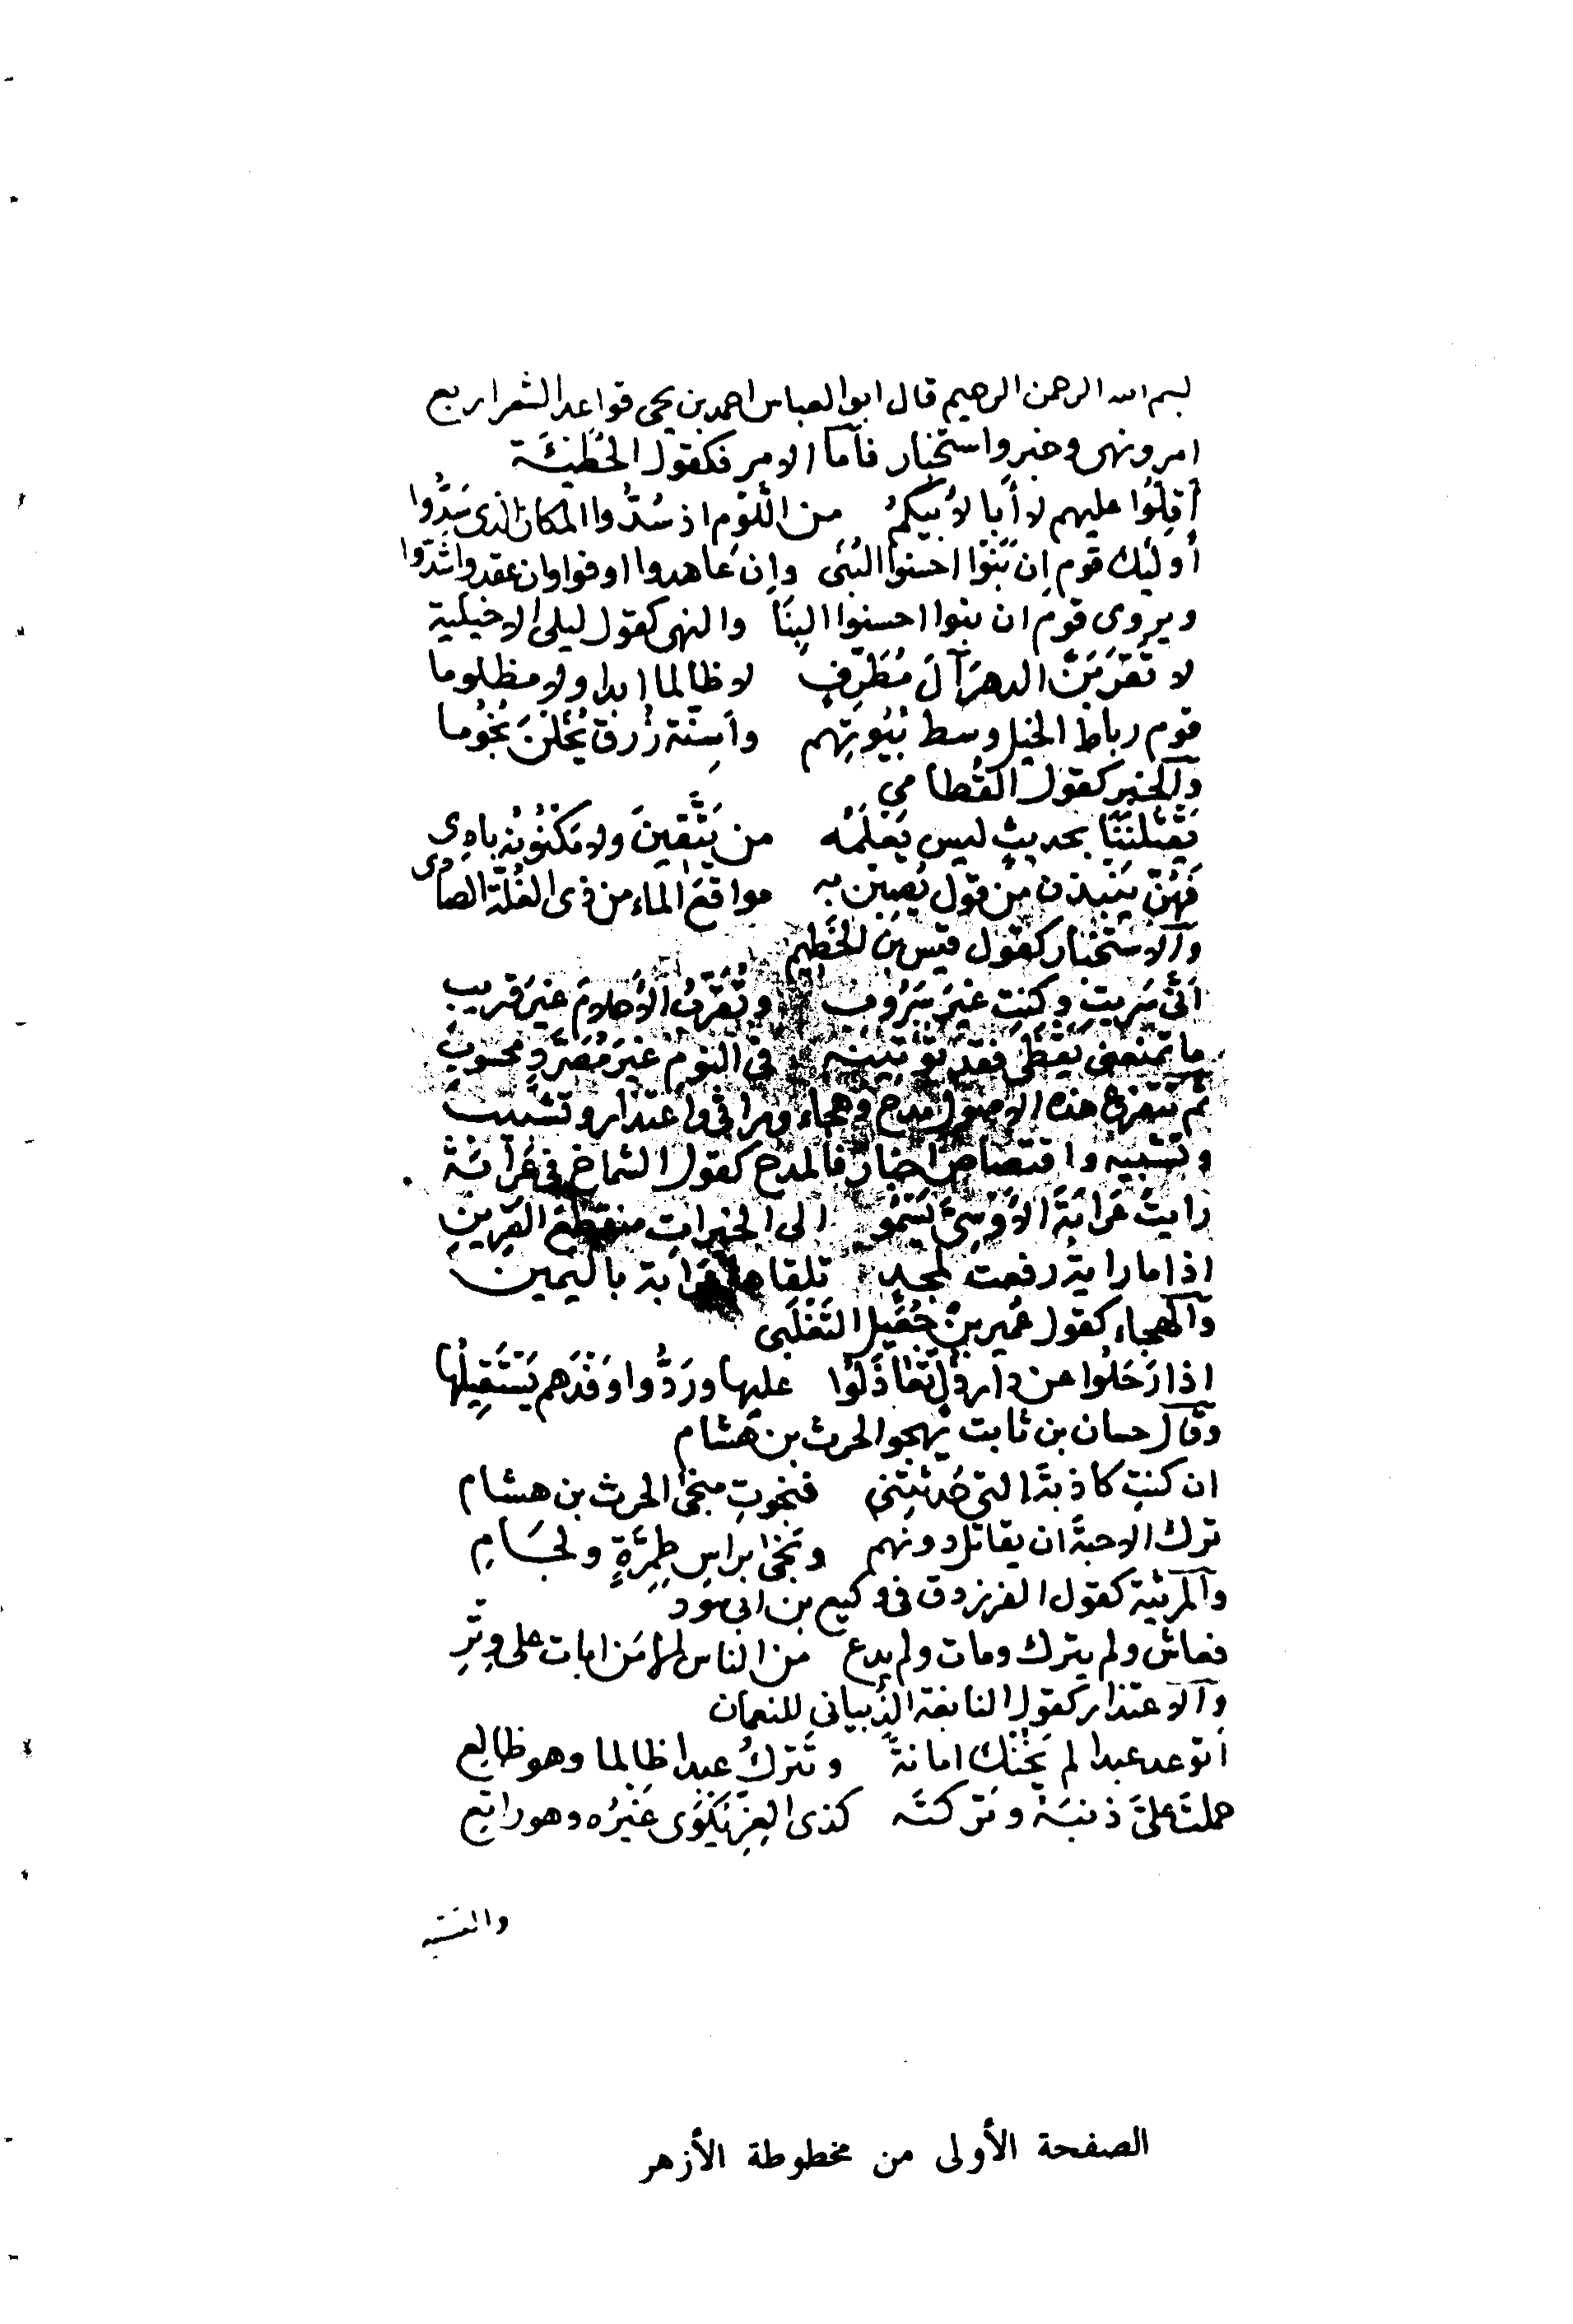 بسم الله الرحمن الرحيم قال ابو العباس احمد بن يحيى قواعد الشعر اربع
امر ونهى وخبر واستخبار فأما الامر فكقول الحُطَيئَة
أَقِلّوا عليهم لا أبا لأبيكمُ من اللَّوْمِ اذ سُدُّوا المكان الذى سَدُّوا
أوليك قوم إن بَنَوْا احسنوا البُنَى وإن عاهدوا اوفوا وان عقدوا شَدّوا
ويروى قوم ان بنوا احسنوا البِنَا والنهى كقول ليلى الاخيلية
لا تَقرَبَنّ الدهرَ آلَ مُطَرِّفٍ لا ظالما ابدا ولا مظلوما
قوم رباط الخيل وسط بُيُوتِهم وأسِنّة زُرق يُخَلْنَ نُجُوما
والخبر كقول القُطامي
يَقْتُلْنَنَا بحديثٍ ليس يَعْلَمُه من يَتَّقِينَ ولا مَكْنُونُه بادِى
فَهُنّ يَنبِذن من قول يُصِبْن به مواقعَ الماء من ذى الغُلّة الصادى
والاستخبار كقول قيس بن الخَطِيم
أنَّى سَرَيتِ وكنتِ غيرَ سَرُوبِ وتُقَرِّبُ الأحلامُ غيرَ قريبِ
ما تمنعى يَقْظَى فقد تؤتِينَه فى النومِ غيرَ مُصَرَّدٍ محسوبِ
ثم تتفرع هذه الاصول مدح وهجاء ومراثى واعتذار وتشبيب
وتشبيه واقتصاص اخبار فالمدح كقول الشماخ فى عَرَابَة
رايتُ عَرابَةَ الأَوْسِىَّ يَسْمُو الى الخيراتِ منقطعَ القَرِينِ
اذا ما راية رفعت لمجد تلقاها عرابة باليمين
والهجاء كقول عُمَيرِ بن جُعَيل التَغْلَبى
إذا رَحَلُوا عن دار ذُلّ تَعَاذَلُوا عليها ورَدُّوا وَفْدَهم يَسْتَقِيلُها
وقال حسان بن ثابت يهجو الحرث بن هشام
ان كنتِ كاذبةَ التى حَدثتِنى فنجوتِ منجَى الحرث بن هشام
ترك الاحبةَ ان يقاتل دونهم ونجَى براسِ طِمِرَّةٍ ولجَامِ
والمرثية كقول الفرزدق فى وكيع بن ابى سود
فعاش ولم يترك ومات ولم يدع من الناس إلا مَن ابات على وِتْرِ
والاعتذار كقول النابغة الذُبيانى للنعمان
اتوعد عبدا لم يَخُنْك امانةً وتَتركُ عبدا ظالما وهو ظالع
حملتَ علىَّ ذنبَهُ وتركتَه كذى العِرّ يُكْوَى غَيْرُه وهو راتع
الصفحة الأولى من مخطوطة الأزهر